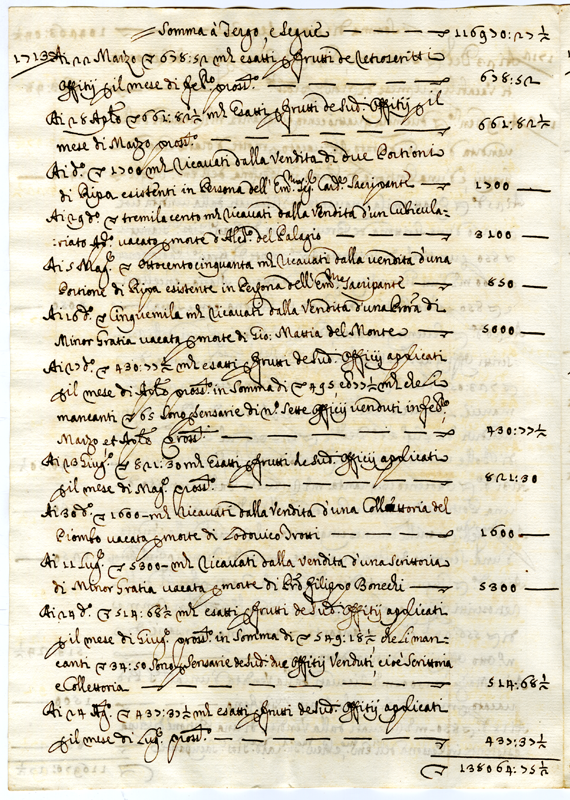 Somma à Tergo, e Segue — — — 116970:27½
1713 Ai 22 Marzo ▽ 678:52 mta esatti p frutti de retroscritti
Offitij p il mese di Febro pross.o — — — 678:52
Ai 28 Aple ▽ 661:82½ mta Esatti p frutti de Sud.i Offitij p il
mese di Marzo pross.o — — — 661:82½
Ai d.o ▽ 1700 mta Ricavati dalla Vendita di due Portioni
di Ripa esistenti in Persona dell' Em.mo Sig.r Card.l Sacripante — 1700 —
Ai 29 d.o ▽ tremila cento mta ricavati dalla Vendita d'un Cubicula=
:riato Ap.o vacato p morte d'Aless.o del Palagio — — 3100 —
Ai 5 Mag.o ▽ Ottocento cinquanta mta ricavati dalla vendita d'una
Portione di Ripa esistente in Persona dell'Em.mo Sacripante — 850 —
Ai 16 d.o ▽ Cinquemila mta Ricavati dalla Vendita d'una di
Minor Gratia vacata p morte di Gio: Mattia del Monte — 5000 —
Ai 17 d.o ▽ 430:77½ mta esatti p frutti de Sud.i Offitij applicati
p il mese di Aple pross.o in Somma di ▽ 495 e 77½ mta che li
mancanti ▽ 65 Sono p Sensarie di n.o Sette Offitij venduti in Febro
Marzo et Aple pross.o — — — 430:77½
Ai 13 Giug.o ▽ 821:30 mta Esatti p frutti de Sud.i Offitij applicati
p il mese di Mag.o pross.o — — — 821:30
Ai 30 d.o ▽ 1600 — mta Ricavati dalla Vendita d'una Collettoria del
Piombo vacata p morte di Lodovico — — 1600 —
Ai 11 Lug.o ▽ 5300 — mta Ricavati dalla vendita d'una Scrittoria
di Minor Gratia vacata p morte di Filippo Bonechi — 5300 —
Ai 24 d.o ▽ 514:68½ mta esatti p frutti de Sud.i Offitij applicati
p il mese di Giug.o pross.o in Somma di ▽ 549:18½ che li man=
canti ▽ 34:50 Sono p Sensarie de Sud.i due Offitij Venduti, cioè Scrittoria
e Collettoria — — — 514:68½
Ai 24 Ag.o ▽ 437:37½ mta esatti p frutti de Sud.i Offitij applicati
p il mese di Lug.o pross.o — — — 437:37½
▽ 138064:75½